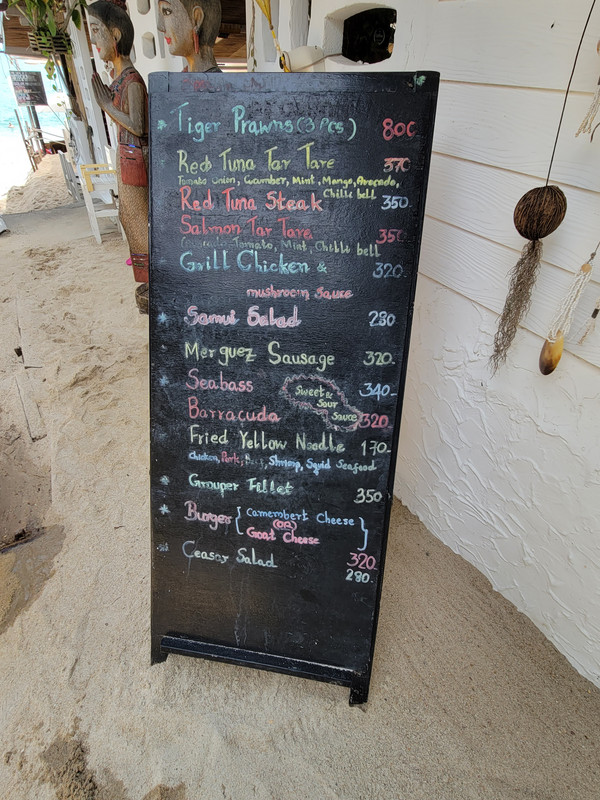 * Tiger Prawns (3 Pcs) 800
Red Tuna Tar Tare 370
Tomato Onion, Cucumber, Mint, Mango, Avocado,
Chilli bell
Red Tuna Steak 350.
Salmon Tar Tare 350
Tomato, Mint, Chilli bell
Grill Chicken & 320.
mushroom Sauce
* Samui Salad 280
Merguez Sausage 320.
* Seabass 340.
Sweet &
Sour
Sauce
Barracuda 320.
Fried Yellow Noodle 170.
Chicken, Pork, Shrimp, Squid Seafood
* Grouper Fillet 350
* Burger { Camembert Cheese }
(OR)
Goat Cheese
320
* Ceasar Salad
280.